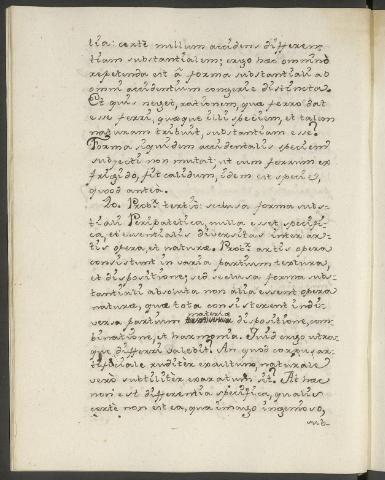 lia: certè nullum accidens differen
tiam substantialem; ergo haec omninò
repetenda est â forma substantiali ab
omni accidentium congerie distincta.
Et quis neget, rationem, quae ferro dat
esse ferri, quaeque illi speciem, et talem
naturam tribuit, substantiam esse?
Forma siquidem accidentalis speciem
subjecti non mutat, ut cum ferrum ex
frigido, fit calidum, idem est specie,
quod antea.
20. Prob.r tertiò: seclusa forma subs-
tiali Peripatetica, nulla esset specifi-
ca, et essentialis diversitas inter ar-
tis opera, et naturae. Prob.r artis opera
consistunt in varia partium textura,
et dispositione; sed seclusa forma subs-
tantiali absoluta non alia essent opera
naturae, quae tota consisterent in di-
versa partium materia dispositione, com-
binatione, et harmonia. Quid ergo utra-
que differri valebit? An quod corpus ar-
tificiale rudit èr exculptum, naturale
verò subtilitèr exaratum sit? At haec
non est differentia specifica, qualis
certè non est ea, qua imago ingenioso,